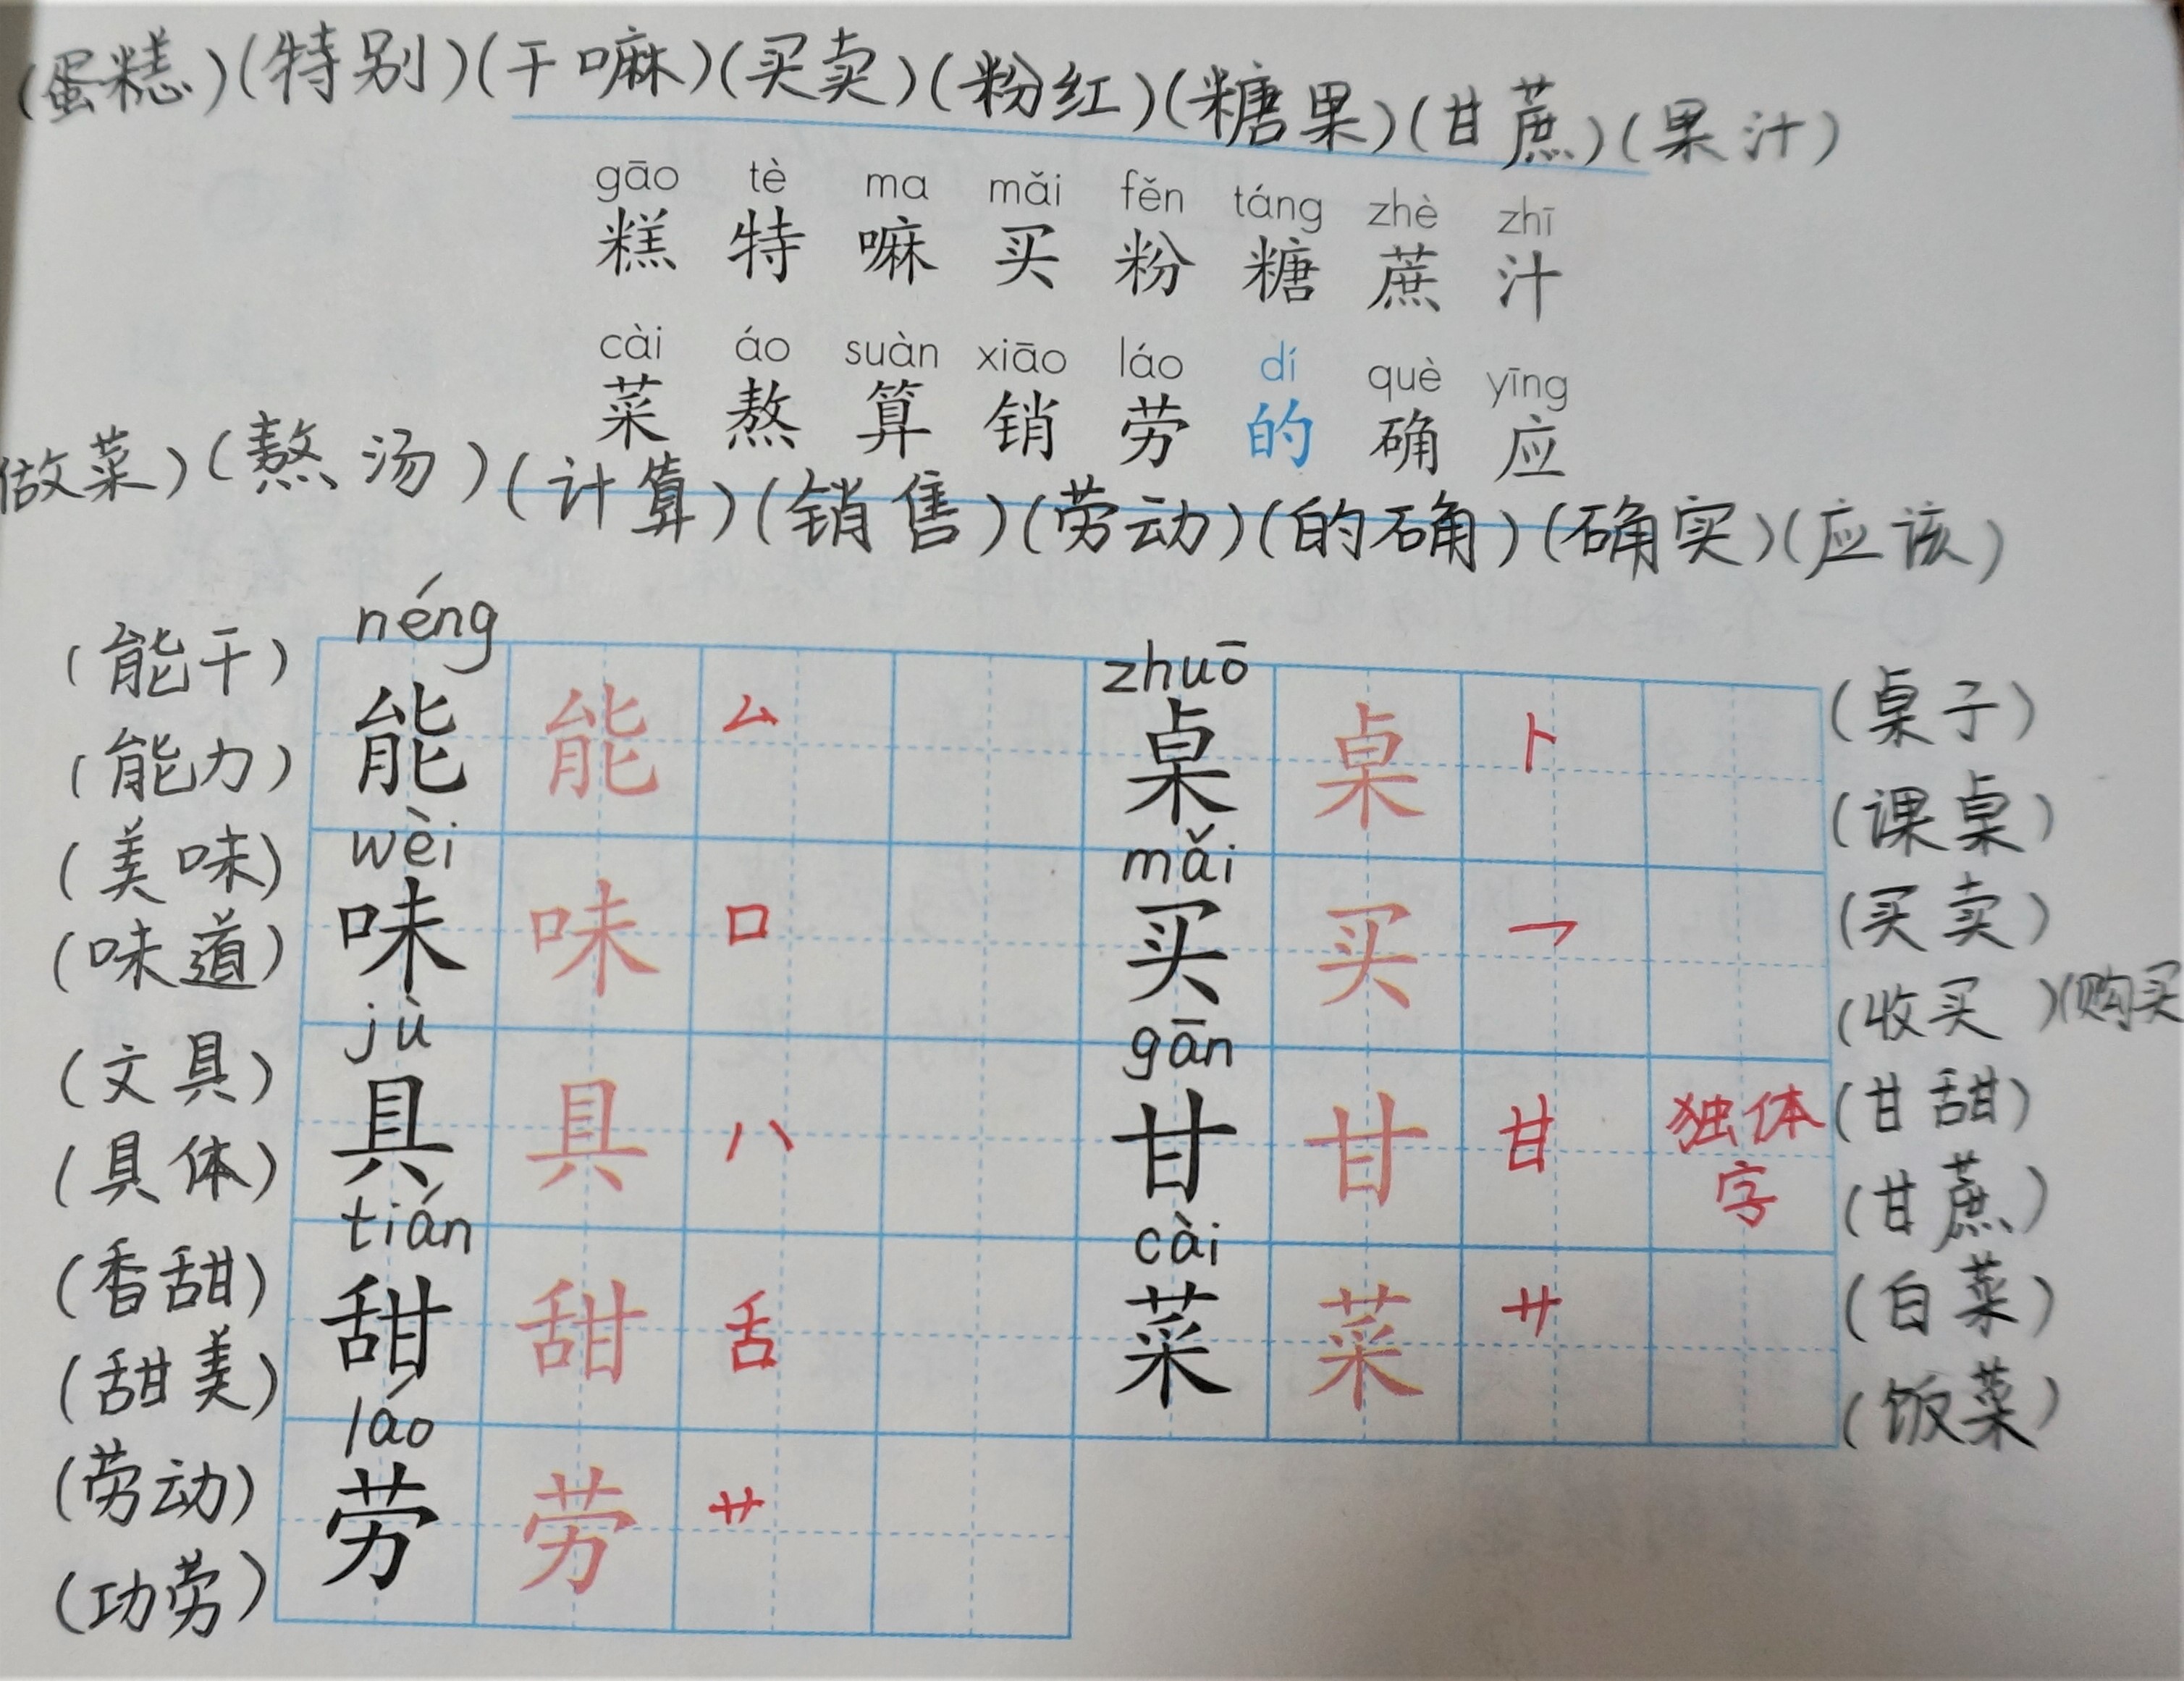 (蛋糕)(特别)(干嘛)(买卖)(粉红)(糖果)(甘蔗)(果汁)
gāo tè ma mǎi fěn táng zhè zhī
糕 特 嘛 买 粉 糖 蔗 汁
cài áo suàn xiāo láo dí què yīng
菜 熬 算 销 劳 的 确 应
做菜)(熬汤)(计算)(销售)(劳动)(的确)(确实)(应该)
néng zhuō
(能干) 能 能 厶 桌 桌 卜 (桌子)
(能力) (课桌)
wèi mǎi
(美味) 味 味 口 买 买 乛 (买卖)
(味道) (收买)(购买
jù gān
(文具) 具 具 八 甘 甘 甘 独体字 (甘甜)
(具体) (甘蔗)
tián cài
(香甜) 甜 甜 舌 菜 菜 艹 (白菜)
(甜美) (饭菜)
láo
(劳动) 劳 劳 艹
(功劳)